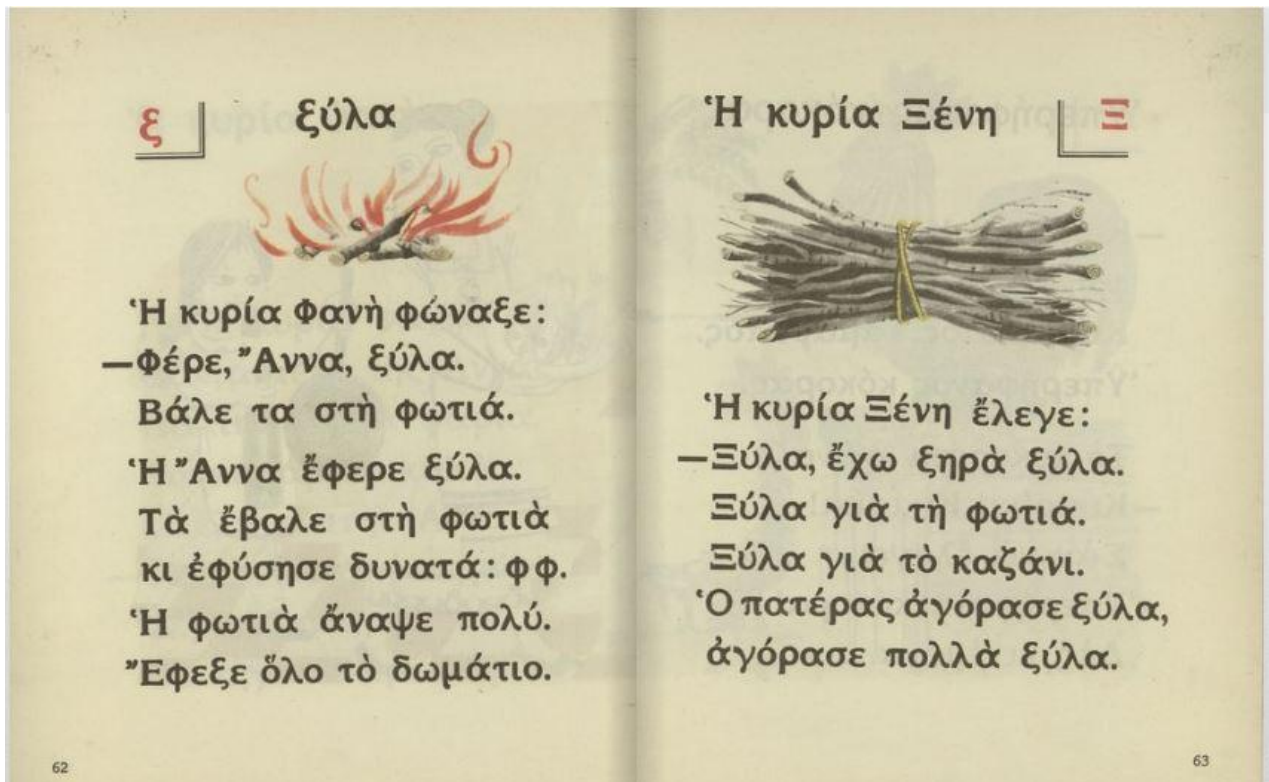 ξ
ξύλα
Ἡ κυρία Φανὴ φώναξε:
—Φέρε, Ἄννα, ξύλα.
Βάλε τα στὴ φωτιά.
Ἡ Ἄννα ἔφερε ξύλα.
Τὰ ἔβαλε στὴ φωτιὰ
κι ἐφύσησε δυνατά: φφ.
Ἡ φωτιὰ ἄναψε πολύ.
Ἔφεξε ὅλο τὸ δωμάτιο.
62
Ἡ κυρία Ξένη
Ξ
Ἡ κυρία Ξένη ἔλεγε:
—Ξύλα, ἔχω ξηρὰ ξύλα.
Ξύλα γιὰ τὴ φωτιά.
Ξύλα γιὰ τὸ καζάνι.
Ὁ πατέρας ἀγόρασε ξύλα,
ἀγόρασε πολλὰ ξύλα.
63